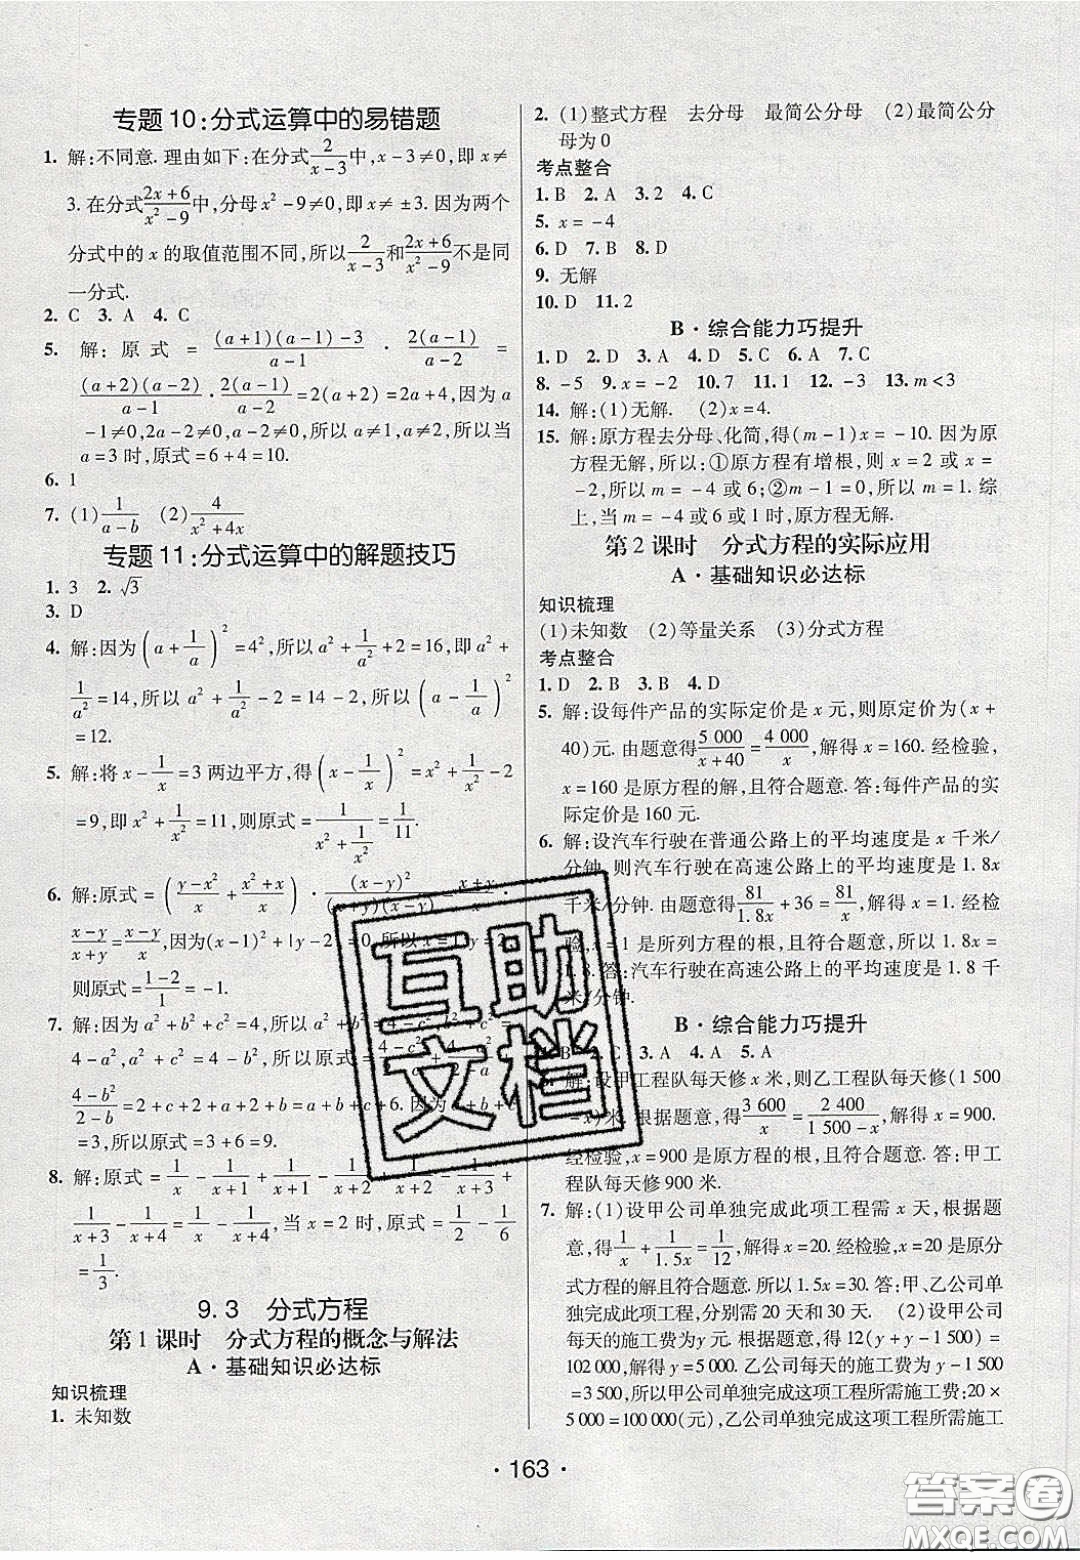 专题10:分式运算中的易错题
1. 解:不同意. 理由如下:在分式2/(x-3)中,x-3≠0,即x≠
3. 在分式(2x+6)/(x²-9)中,分母x²-9≠0,即x≠±3. 因为两个
分式中的x的取值范围不同,所以2/(x-3)和(2x+6)/(x²-9)不是同
一分式.
2. C 3. A 4. C
5. 解:原式=((a+1)(a-1)-3)/(a-1)·2(a-1)/(a-2)=
(a+2)(a-2)/(a-1)·2(a-1)/(a-2)=2(a+2)=2a+4,因为a
-1≠0,2a-2≠0,a-2≠0,所以a≠1,a≠2,所以当
a=3时,原式=6+4=10.
6. 1
7. (1)1/(a-b) (2)4/(x²+4x)
专题11:分式运算中的解题技巧
1. 3 2. √3
3. D
4. 解:因为(a+1/a)²=4²,所以a²+1/a²+2=16,即a²+
1/a²=14,所以a²+1/a²-2=14-2,所以(a-1/a)²
=12.
5. 解:将x-1/x=3两边平方,得(x-1/x)²=x²+1/x²-2
=9,即x²+1/x²=11,则原式=1/(x²+1/x²)=1/11.
6. 解:原式=((y-x²)/x+(x²+x)/x)·(x-y)²/((x+y)(x-y))
(x-y)/(x+y)=(x-y)/x,因为(x-1)²+|y-2|=0,所以x=1,y=2,
则原式=(1-2)/1=-1.
7. 解:因为a²+b²+c²=4,所以a²+b²=4-c²,b²+c²=
4-a²,a²+c²=4-b²,所以原式=
(4-b²)/(2-b)=2+c+2+a+2+b=a+b+c+6. 因为
=3,所以原式=3+6=9.
8. 解:原式=1/x-1/(x+1)+1/(x+1)-1/(x+2)+1/(x+2)-1/(x+3)+
1/(x+3)-1/(x+4)=1/x-1/(x+4),当x=2时,原式=1/2-1/6
=1/3.
9.3 分式方程
第1课时 分式方程的概念与解法
A·基础知识必达标
知识梳理
1. 未知数
2. (1)整式方程 去分母 最简公分母 (2)最简公分
母为0
考点整合
1. B 2. A 3. 2 4. C
5. x=-4
6. D 7. B 8. D
9. 无解
10. D 11. 2
B·综合能力巧提升
1. D 2. D 3. A 4. D 5. C 6. A 7. C
8. -5 9. x=-2 10. 7 11. 1 12. -3 13. m<3
14. 解:(1)无解. (2)x=4.
15. 解:原方程去分母、化简,得(m-1)x=-10. 因为原
方程无解,所以:①原方程有增根,则x=2或x=
-2,所以m=-4或6;②m-1=0,所以m=1. 综
上,当m=-4或6或1时,原方程无解.
第2课时 分式方程的实际应用
A·基础知识必达标
知识梳理
(1)未知数 (2)等量关系 (3)分式方程
考点整合
1. D 2. B 3. B 4. D
5. 解:设每件产品的实际定价是x元,则原定价为(x+
40)元. 由题意得5 000/(x+40)=4 000/x,解得x=160. 经检验,
x=160是原方程的解,且符合题意. 答:每件产品的实
际定价是160元.
6. 解:设汽车行驶在普通公路上的平均速度是x千米/
分钟,则汽车行驶在高速公路上的平均速度是1.8x
千米/分钟. 由题意得81/1.8x+36=81/x,解得x=1. 经检
验,x=1是所列方程的根,且符合题意,所以1.8x=
1.8. 答:汽车行驶在高速公路上的平均速度是1.8千
米/分钟.
B·综合能力巧提升
B 2. C 3. A 4. A 5. A
解:设甲工程队每天修x米,则乙工程队每天修(1 500
-x)米. 根据题意,得3 600/x=2 400/(1 500-x),解得x=900.
经检验,x=900是原方程的根,且符合题意. 答:甲工
程队每天修900米.
7. 解:(1)设甲公司单独完成此项工程需x天,根据题
意,得1/x+1/1.5x=1/12,解得x=20. 经检验,x=20是原分
式方程的解且符合题意. 所以1.5x=30. 答:甲、乙公司单
独完成此项工程,分别需20天和30天. (2)设甲公司
每天的施工费为y元. 根据题意,得12(y+y-1 500)=
102 000,解得y=5 000. 乙公司每天的施工费为y-1 500
=3 500,所以甲公司单独完成这项工程所需施工费:20×
5 000=100 000(元),乙公司单独完成这项工程所需施工
·163·
互助
文档
答案圈
MXQE.COM